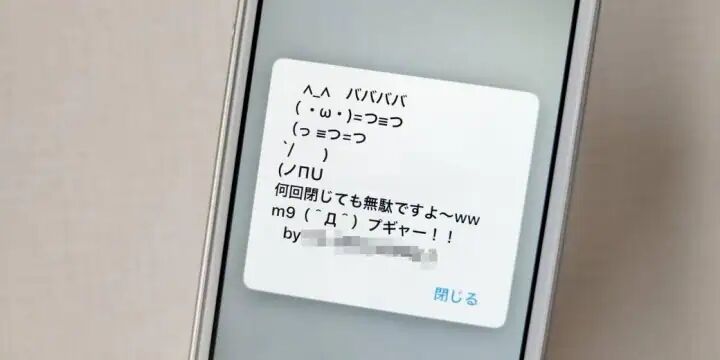 ∧_∧　ババババ
( ・ω・)=つ≡つ
(っ ≡つ=つ
`/　　)
(ノΠU
何回閉じても無駄ですよ～ww
m9（＾Д＾）プギャー！！
by
閉じる